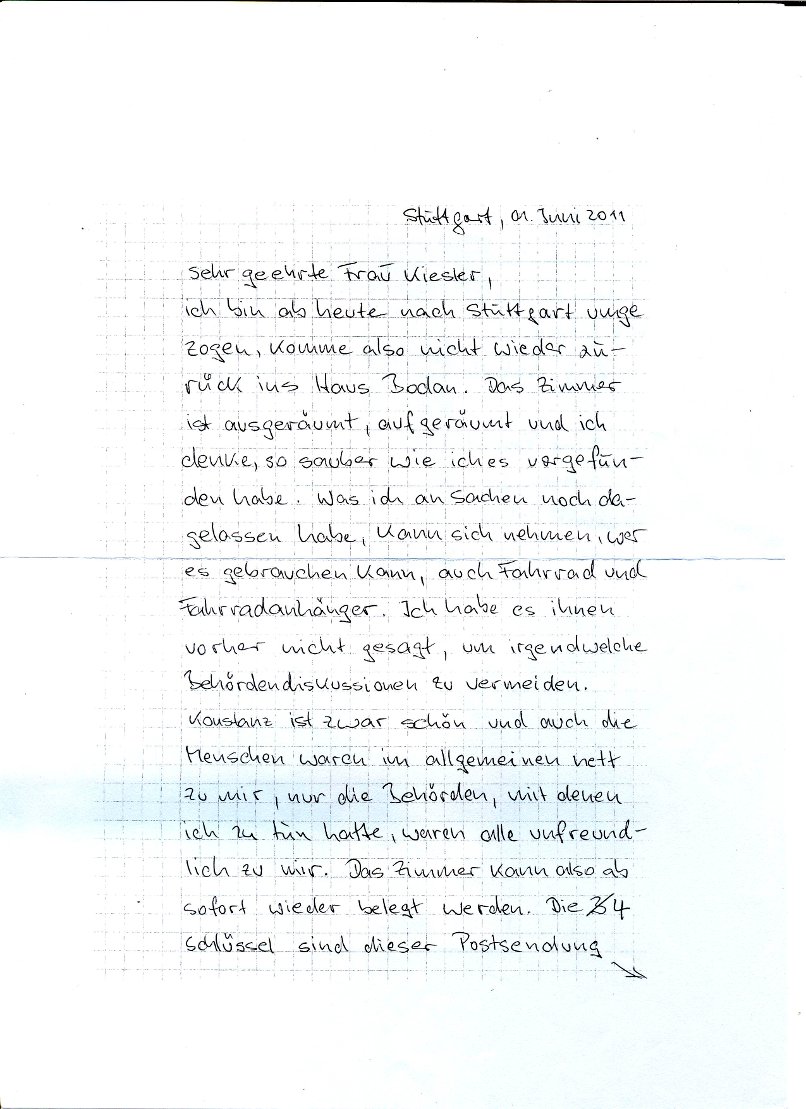 Stuttgart, 01. Juni 2011
Sehr geehrte Frau Kiesler,
ich bin ab heute nach Stuttgart umge
zogen, komme also nicht wieder zu-
rück ins Haus Bodan. Das Zimmer
ist ausgeräumt, aufgeräumt und ich
denke, so sauber wie ich es vorgefun-
den habe. Was ich an Sachen noch da-
gelassen habe, kann sich nehmen, wer
es gebrauchen kann, auch Fahrrad und
Fahrradanhänger. Ich habe es ihnen
vorher nicht gesagt, um irgendwelche
Behördendiskussionen zu vermeiden.
Konstanz ist zwar schön und auch die
Menschen waren im allgemeinen nett
zu mir, nur die Behörden, mit denen
ich zu tun hatte, waren alle unfreund-
lich zu mir. Das Zimmer kann also ab
sofort wieder belegt werden. Die 4
Schlüssel sind dieser Postsendung